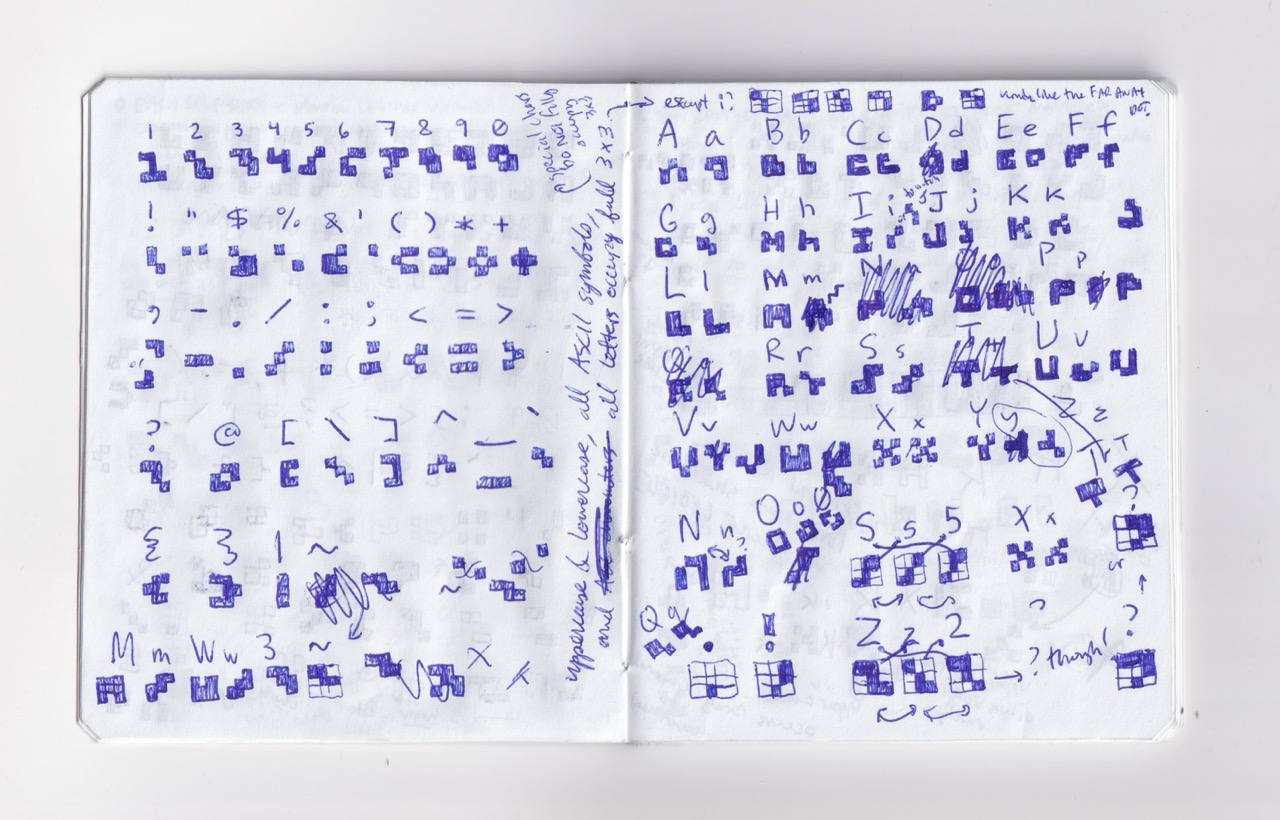 1 2 3 4 5 6 7 8 9 0
! " $ % & ' ( ) * +
, - . / : ; < = >
? @ [ \ ] ^ _ '
{ } | ~
~
M m W w 3 ~ X
special chars
do not fully
occupy
3x3
uppercase & lowercase, all ASCII symbols,
and all letters occupy full 3x3.
except i: like the FAR AWAY
DOT.
A a B b C c D d E e F f
G g H h I i J j K K
L l M m N P p
Q R r S s T U v
V v W w X x Y y Z z
T
N s? O o 0 S s 5 X x ?
or
Q q ! Z z 2 ? ?
? though!